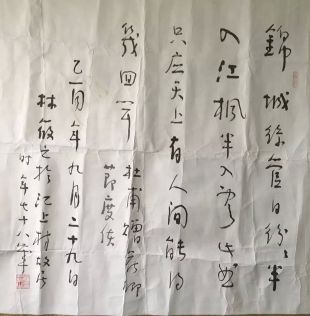 錦城絲管日紛〻半
入江楓半入雲此曲
只应天上有人间能得
幾回闻
杜甫赠花卿
節度使
乙卯年九月二十九日
林散之於江上村故居
时年七十八